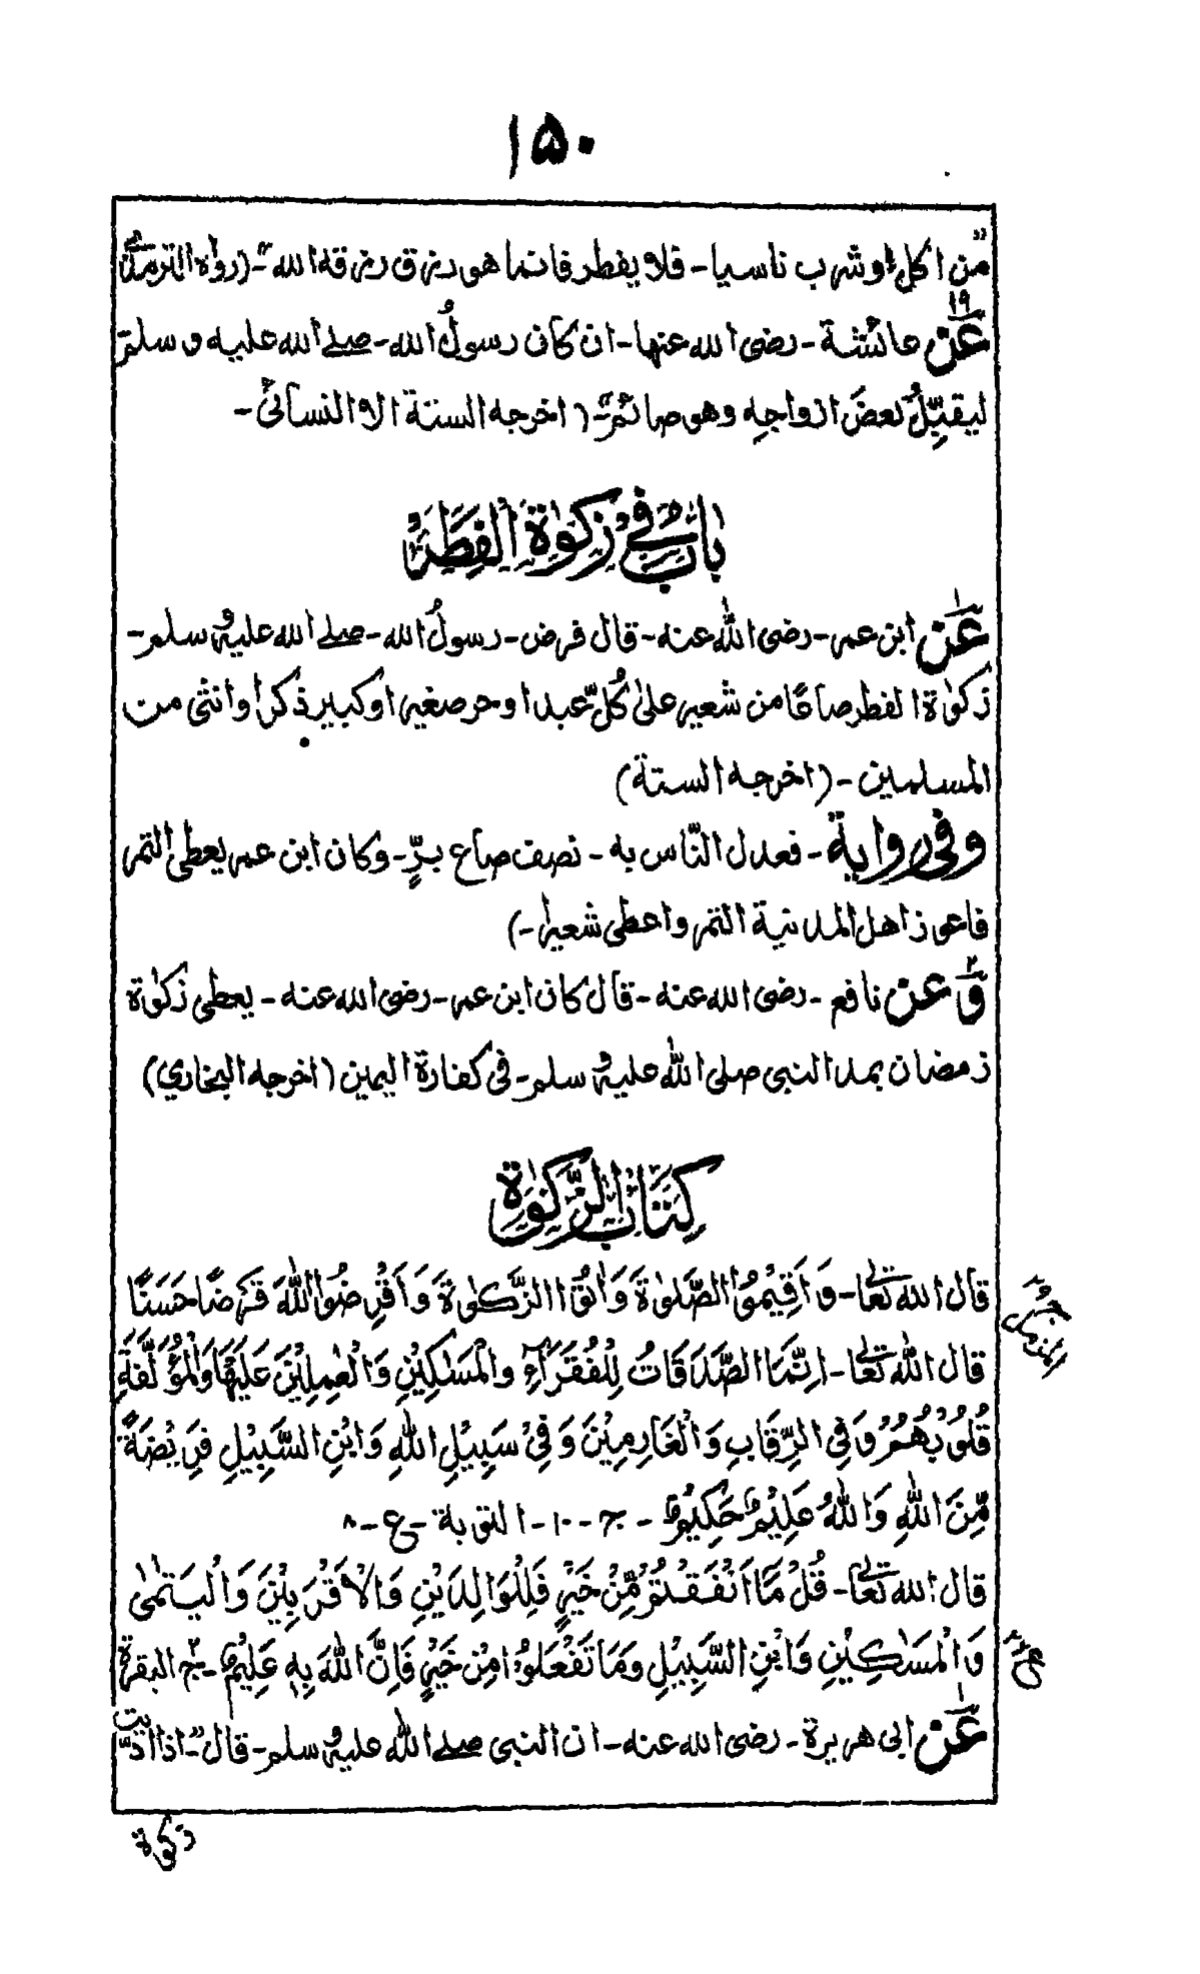 ۱۵۰
"من اکل او شرب ناسیا- فلا یفطر فانما هو رزق رزقه الله"- (رواه الترمذی
۱۹
عَن عائشة - رضی الله عنها- ان کان رسولُ الله- صلے الله علیه و سلم
لیقبِّلُ بعضَ ازواجِه وهو صائمٌ"- (اخرجه الستة الا النسائیؒ-
بابٌ فِیْ زکوٰةِ الفِطَرِ
۱
عَن ابن عمر- رضی الله عنه- قال فرض- رسولُ الله- صلے الله علیهِ و سلم-
زکوٰة الفطر صاعًا من شعیر علیٰ کُلِّ عبد او حر صغیر او کبیر ذکر او انثی من
المسلمین - (اخرجه الستة)
وفی روایة- فعدل النّاس به - نصف صاع بُرٍّ- وکان ابن عمر یعطی التمر
فاعوز اهل المدنیة التمر واعطی شعیرا-)
۲
وَعن نافع - رضی الله عنه - قال کان ابن عمر- رضی الله عنه - یعطی زکوٰة
رمضان بمد النبی صلی الله علیهِ و سلم- فی کفارة الیمین (اخرجه البخاری)
کِتَابُ الزَّکوٰةِ
قال الله تعالٰی- وَاَقِیْمُوا الصَّلوٰةَ وَاٰتُوا الزَّکوٰةَ وَاَقْرِضُوا اللهَ قَرْضًا حَسَنًا
المزمل
قال الله تعالٰی- اِنَّمَا الصَّدَقَاتُ لِلْفُقَرَآءِ وَالْمَسٰکِیْنِ وَالْعٰمِلِیْنَ عَلَیْهَا وَالْمُؤَلَّفَةِ
قُلُوْبُهُمْ وَفِی الرِّقَابِ وَالْغَارِمِیْنَ وَفِیْ سَبِیْلِ اللهِ وَابْنِ السَّبِیْلِ فَرِیْضَةً
مِّنَ اللهِ وَاللهُ عَلِیْمٌ حَکِیْمٌ - ج - ۱۰- التوبة - ع - ۸
قال الله تعالٰی- قُلْ مَا اَنْفَقْتُمْ مِّنْ خَیْرٍ فَلِلْوَالِدَیْنِ وَالْاَقْرَبِیْنَ وَالْیَتٰمٰی
وَالْمَسٰکِیْنِ وَابْنِ السَّبِیْلِ وَمَا تَفْعَلُوْا مِنْ خَیْرٍ فَاِنَّ اللهَ بِهٖ عَلِیْمٌ- ج ۲ البقرة
۱
عَن ابی هریرة - رضی الله عنه- ان النبی صلے الله علیهِ و سلم- قال"- اذا ادّیت
زکوٰة